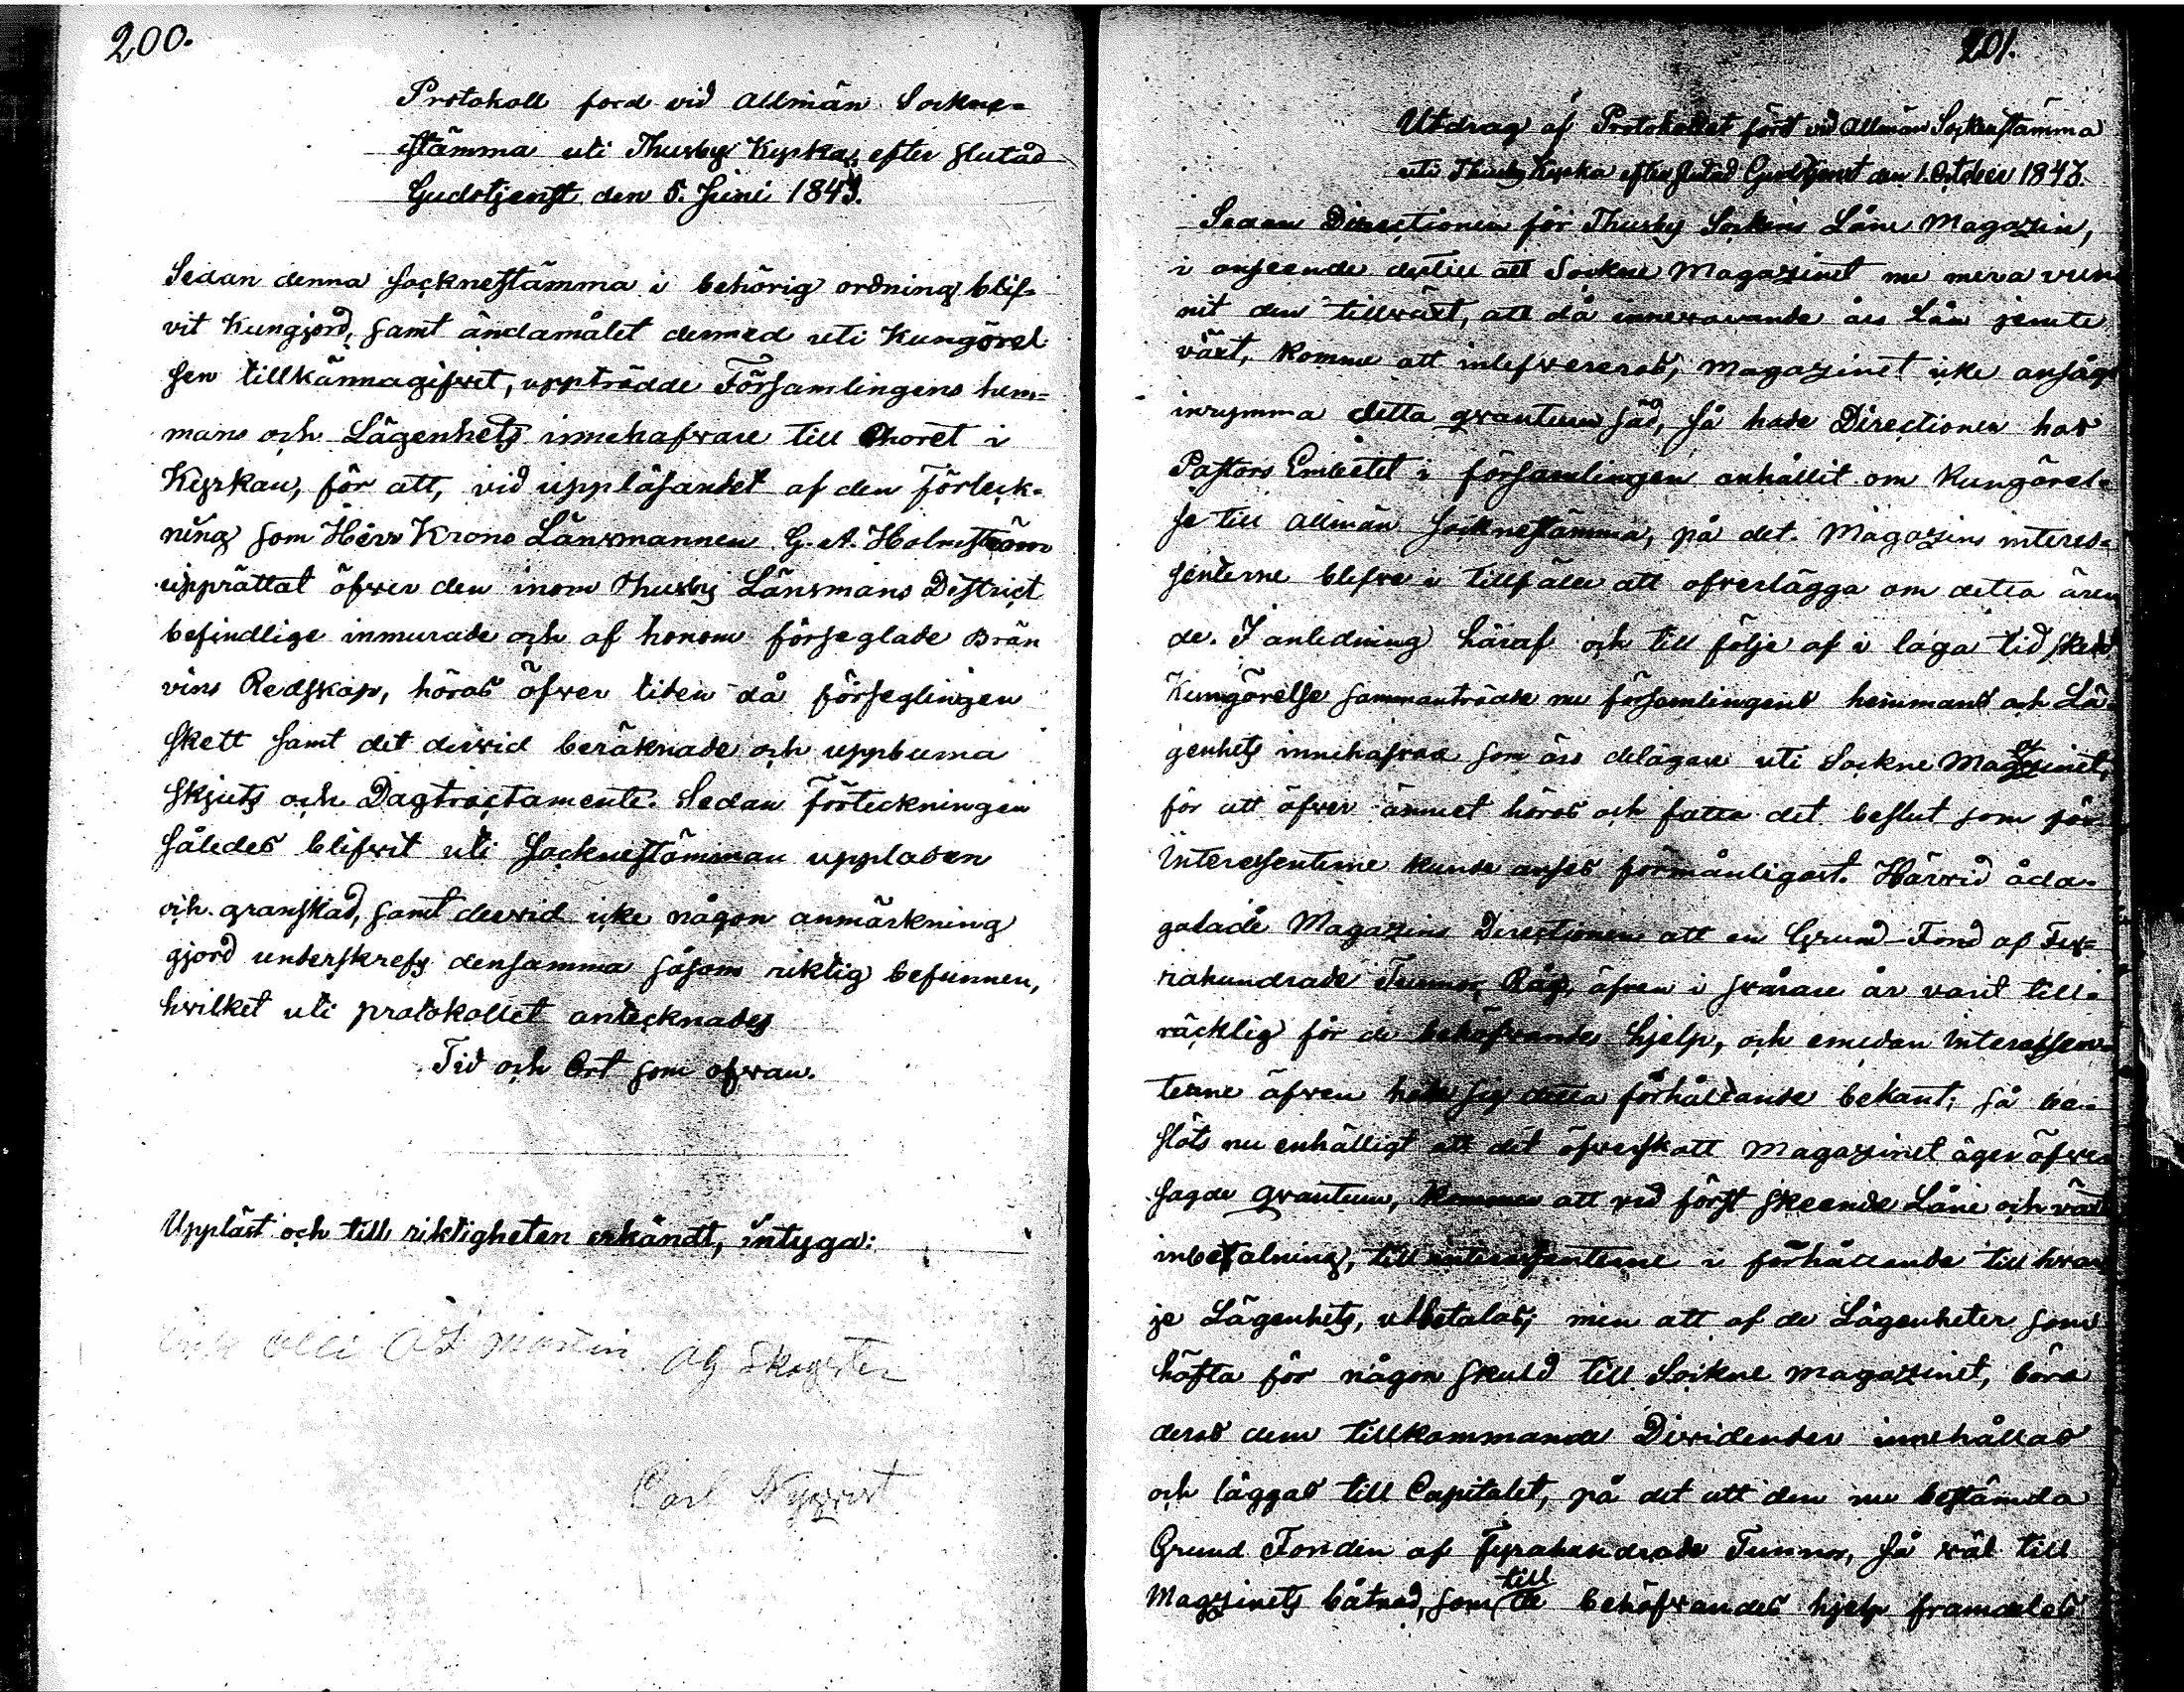 200.
Protokoll förd vid Allmän Sockne-
stämma uti Thusby Kyrka, efter slutad
Gudstjenst den 5. Juni 1843.
Sedan denna Socknestämma i behörig ordning blif-
vit Kungjord, samt ändamålet dermed uti Kungörel
sen tillkännagifvet, uppträdde Församlingens hem-
mans och Lägenhets innehafvare till Choret i
Kyrkan, för att, vid uppläsandet af den förteck-
ning som Herr Krono Länsmannen G. A. Holmström
upprättat öfver den inom Thusby Länsmans District
befindlige inmurade och af honom förseglade Brän
vins Redskap, höras öfver tiden då förseglingen
skett samt det dervid beräknade och uppburna
skjuts och Dagtractamente. Sedan förteckningen
således blifvit uti Socknestämman uppläsen
och granskad, samt dervid icke någon anmärkning
gjord underskrefs densamma såsom riktig befunnen,
hvilket uti protokollet antecknades
Tid och Ort som ofvan.
Uppläst och till riktigheten erkändt, intyga:
Olli Martin
Carl Nyqvist
201.
Utdrag af Protokollet fördt vid Allmän Sockenstämma
uti Thusby Kyrka efter slutad Gudstjenst den 1. October 1843.
Sedan Directionen för Thusby Sockens Låne Magazin,
i anseende dertill att Sockne Magazinet nu mera vun
nit den tillväxt, att då innevarande års Lån jemte
växt, komme att inlefvereras, Magazinet icke ansågs
inrymma detta qvantum säd, så hade Directionen hos
Pastors Embetet i församlingen anhållit om Kungörel-
se till allmän Socknestämma, på det Magazins interes-
senterne blefve i tillfälle att ofverlägga om detta ären
de. I anledning häraf och till följe af i laga tid skedd
Kungörelse sammanträdde nu församlingens hemmans och Lä-
genhets innehafvare som äro delägare uti Sockne Magazinet,
för att öfver ämnet höras och fatta det beslut som för
Interessenterne kunde anses förmånligast. Härvid åda-
galade Magazins Directionen att en Grund-Fond af Fyr-
rahundrade Tunnor Råg, äfven i svårare år varit till-
räcklig för de behöfvandes hjelp, och emedan Interessen-
terne äfven hade sig detta förhållande bekant; så be-
slöts nu enhälligt att det öfverskott Magazinet äger öfver
sagde qvantum, kommer att vid först skeende Låne och växt
inbetalning, till interessenterne i förhållande till hvar
je Lägenhets, utbetalas; men att af de Lägenheter som
häfta för någon skuld till Sockne Magazinet, böra
deras dem tillkommande Dividender innehållas
och läggas till Capitalet, på det att den nu bestämda
Grund Fonden af Fyrahundrade Tunnor, så väl till
Magzinets båtnad, som till de behöfvandes hjelp framdeles